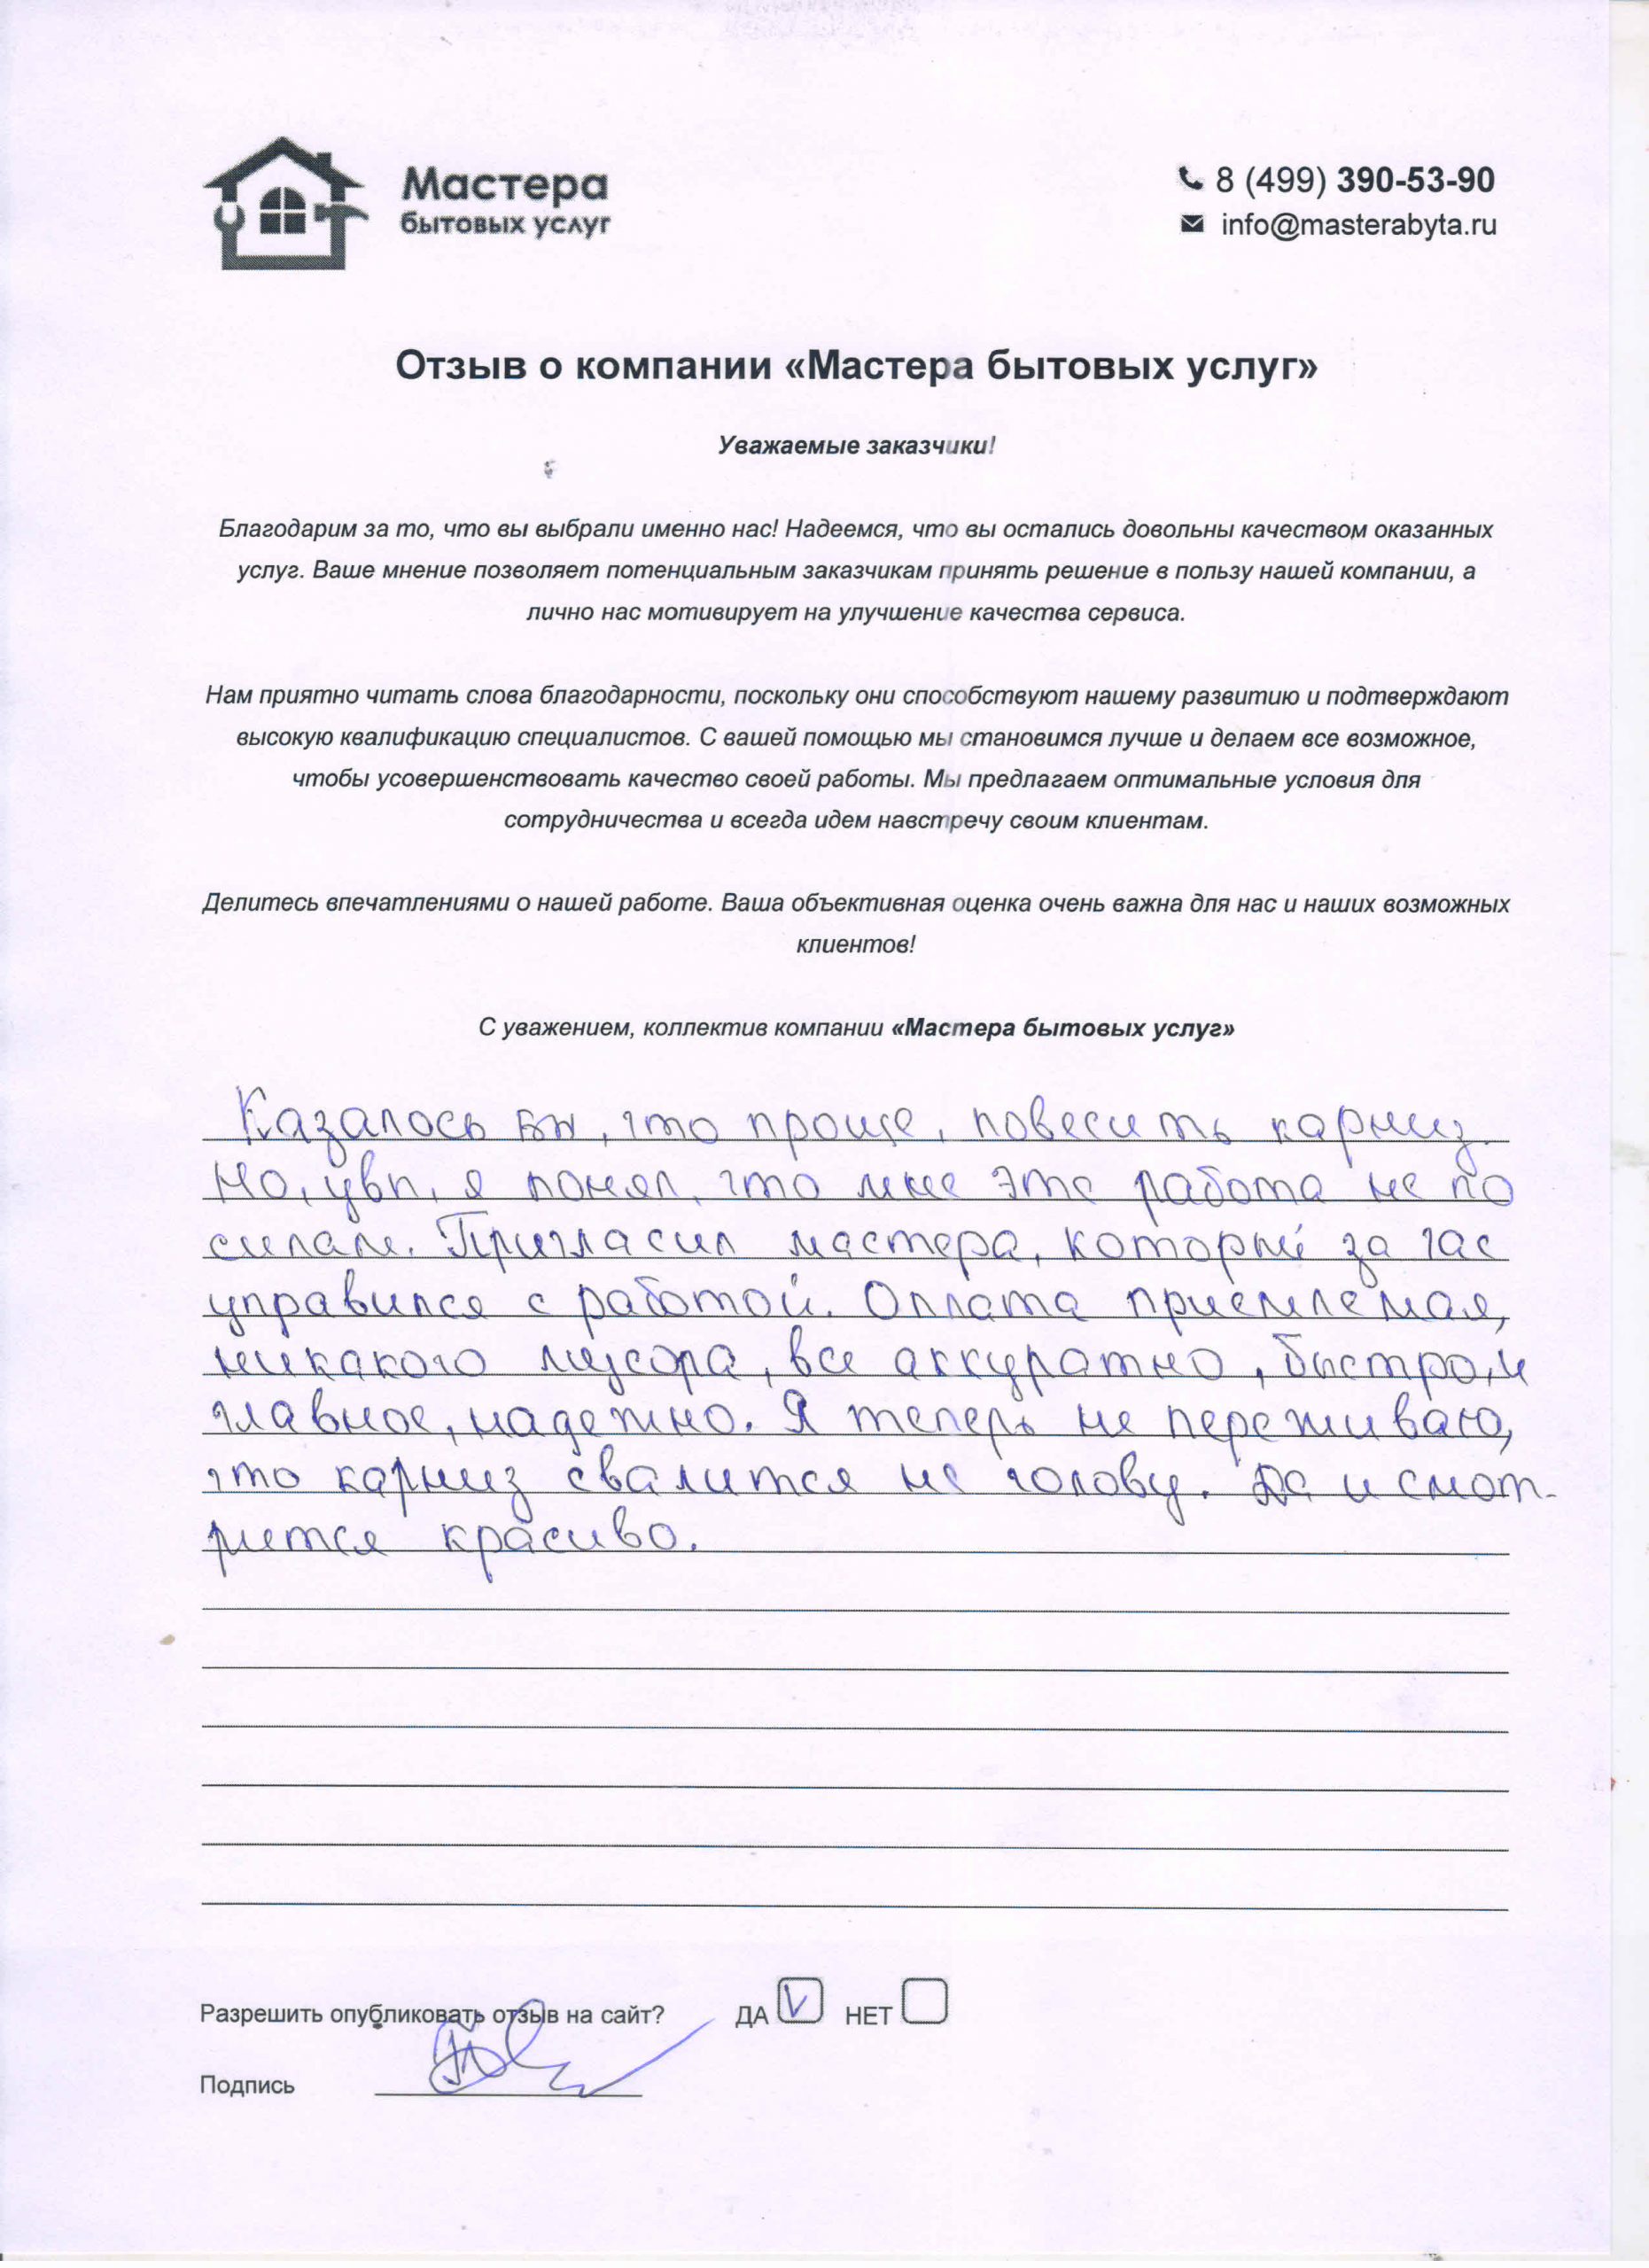 Мастера
бытовых услуг
8 (499) 390-53-90
info@masterabyta.ru
Отзыв о компании «Мастера бытовых услуг»
Уважаемые заказчики!
Благодарим за то, что вы выбрали именно нас! Надеемся, что вы остались довольны качеством оказанных
услуг. Ваше мнение позволяет потенциальным заказчикам принять решение в пользу нашей компании, а
лично нас мотивирует на улучшение качества сервиса.
Нам приятно читать слова благодарности, поскольку они способствуют нашему развитию и подтверждают
высокую квалификацию специалистов. С вашей помощью мы становимся лучше и делаем все возможное,
чтобы усовершенствовать качество своей работы. Мы предлагаем оптимальные условия для
сотрудничества и всегда идем навстречу своим клиентам.
Делитесь впечатлениями о нашей работе. Ваша объективная оценка очень важна для нас и наших возможных
клиентов!
С уважением, коллектив компании «Мастера бытовых услуг»
Казалось бы, что проще, повесить карниз.
Но, увы, я понял, что мне эта работа не по
силам. Пригласил мастера, который за час
управился с работой. Оплата приемлемая,
никакого мусора, все аккуратно, быстро, и
главное, надежно. Я теперь не переживаю,
что карниз свалится на голову. Да и смот-
рится красиво.
Разрешить опубликовать отзыв на сайт? ДА V НЕТ
Подпись